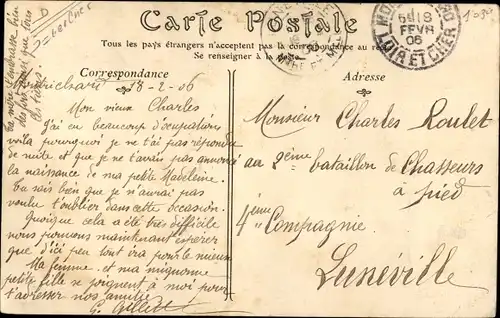 Carte Postale
Tous les pays étrangers n'acceptent pas la correspondance au
Se renseigner à la poste
Correspondance
Adresse
18-2-06
Mon vieux Charles
J'ai eu beaucoup d'occupations
voilà pourquoi je ne t'ai pas répondu
de suite et que je t'avais pas annoncé
la naissance de ma petite Madeleine.
Tu sais bien que je n'aurai pas
voulu t'oublier dans cette occasion.
Quoique cela a été très difficile
nous pouvons maintenant espérer
que d'ici peu tout ira pour le mieux
Ma femme et ma mignonne
petite fille se joignent à moi pour
t'adresser nos amitiés
G. Gillet
Monsieur Charles Roulet
au 2ème bataillon de Chasseurs
à pied
4ième Compagnie
Lunéville
FEVR
06
LOIR ET CHER